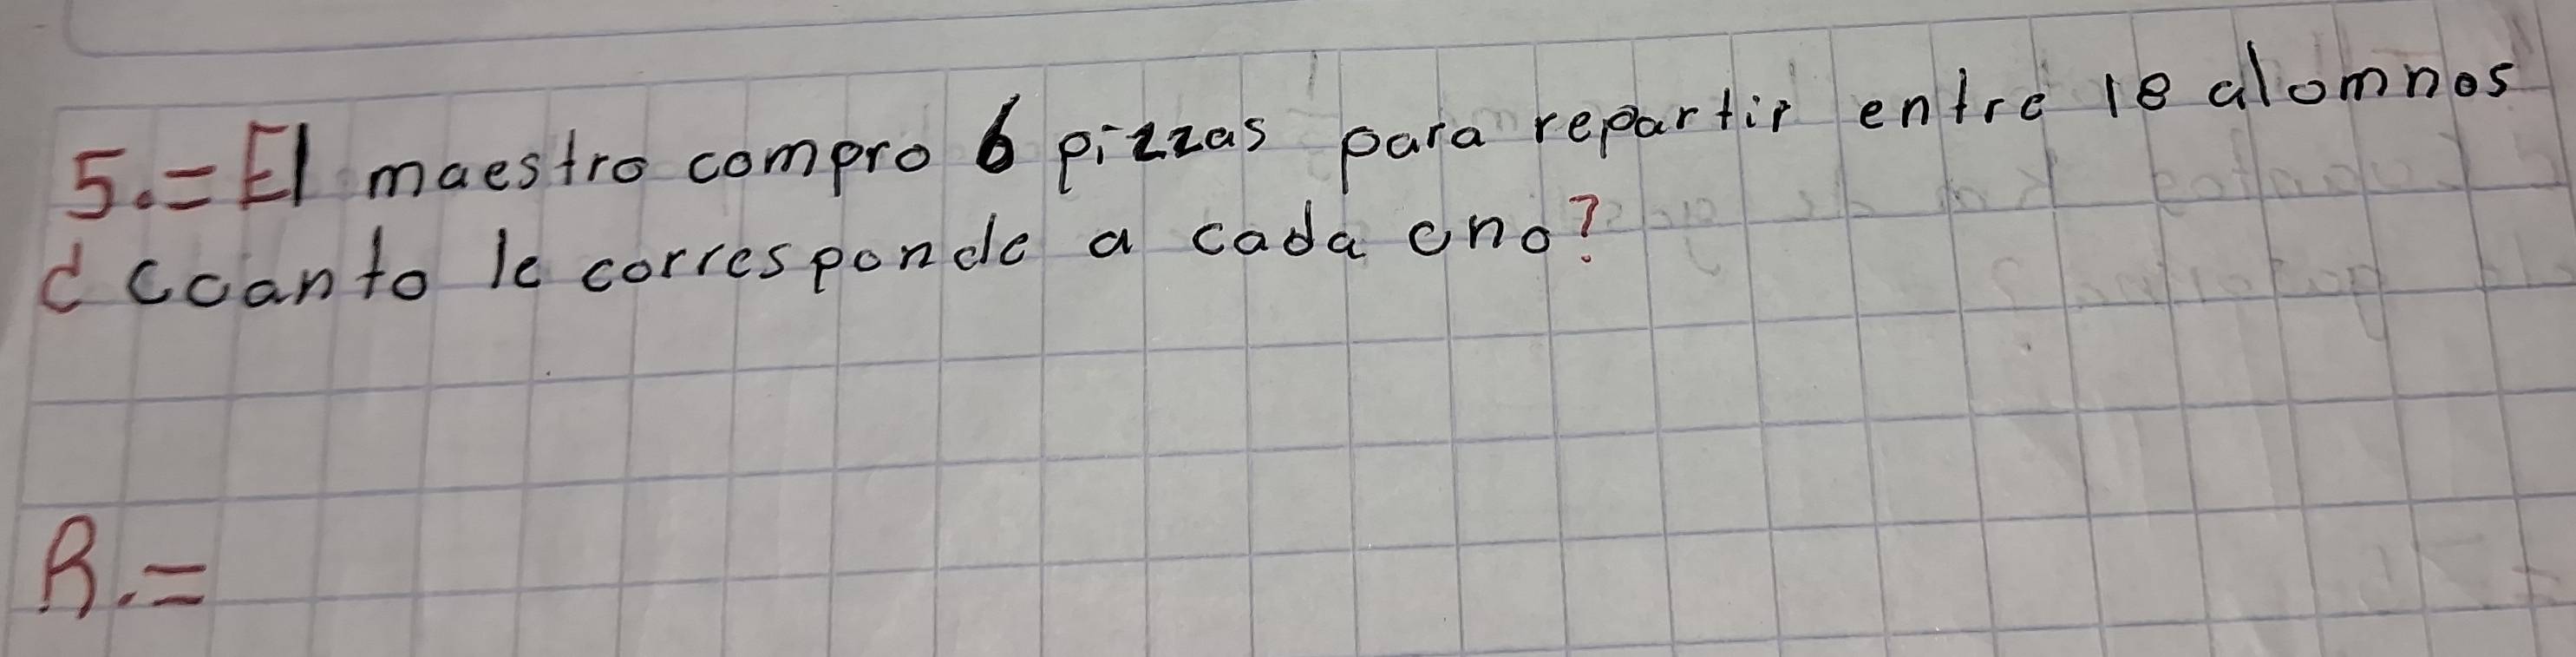 5.= El maestro compro 6 pizzas para repartir entre 18 alomnos
¿ Ccanto le corresponde a cada ono?
R.=